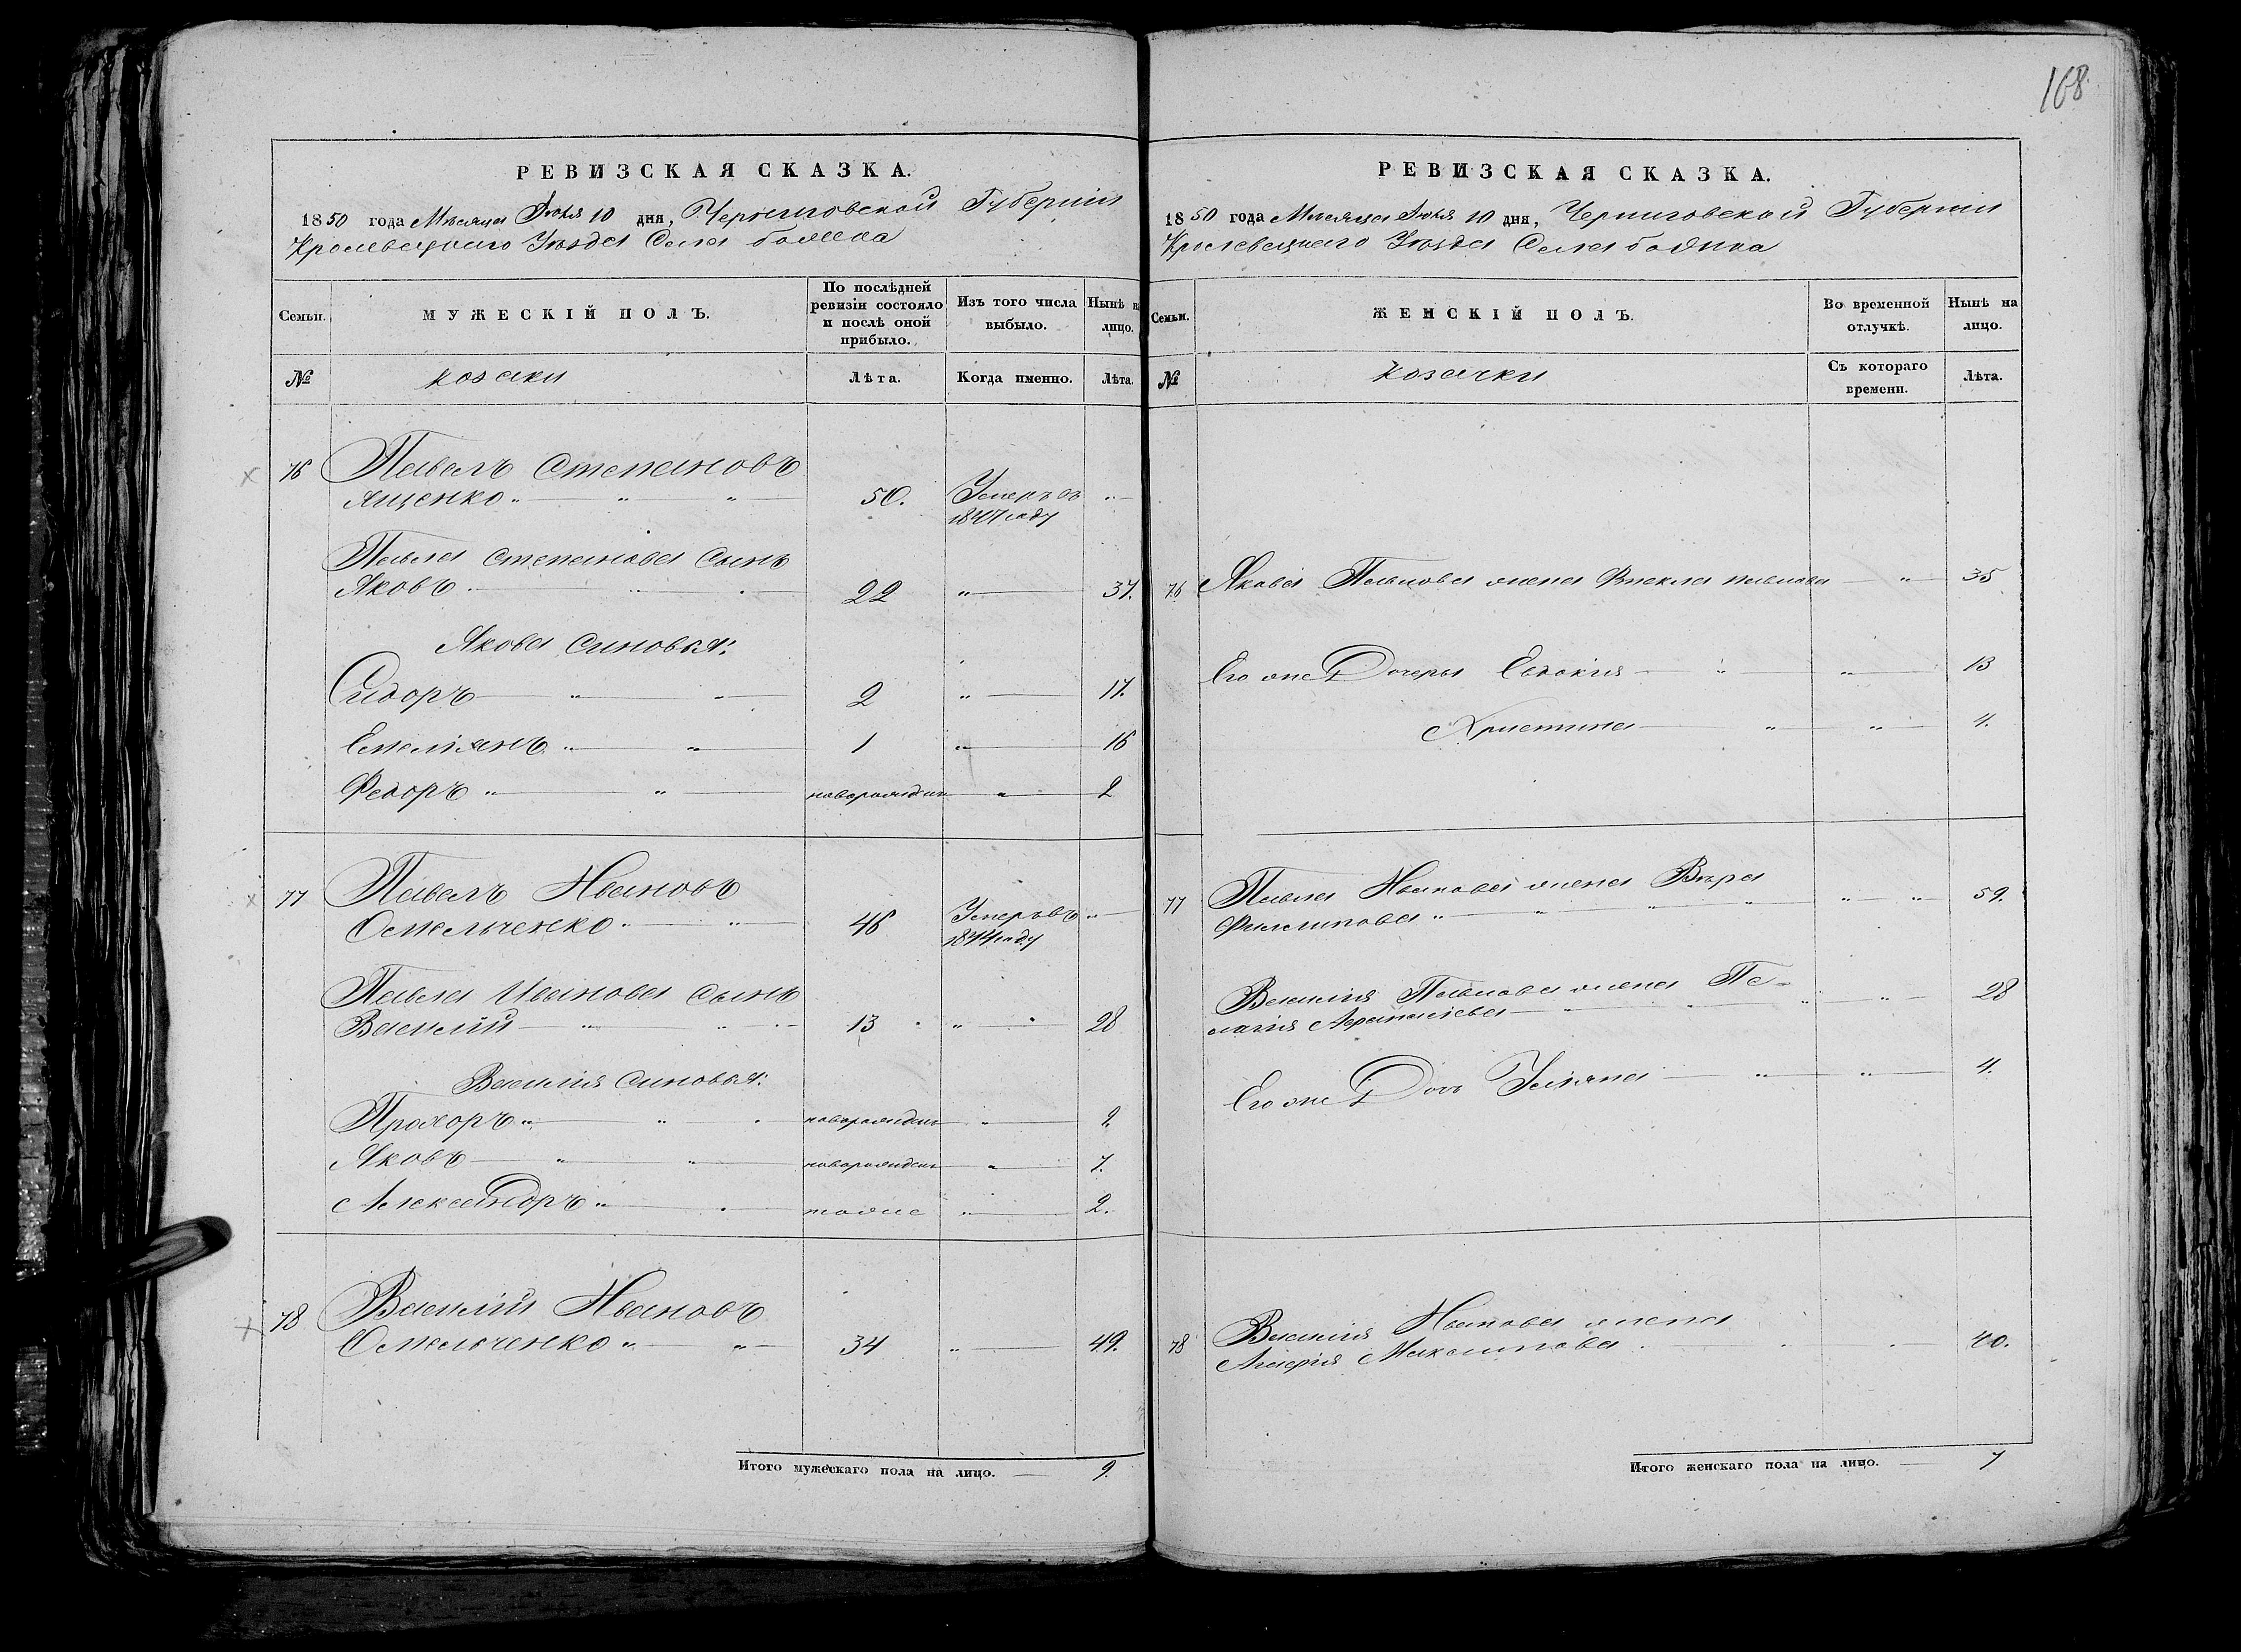 168
РЕВИЗСКАЯ СКАЗКА.
1850 года Мѣсяца Іюля 10 дня, Черниговской Губерніи
Кролевецкаго Уѣзда Села
№ Семьи.
МУЖЕСКІЙ ПОЛЪ.
По послѣдней ревизіи состояло и послѣ оной прибыло.
Изъ того числа выбыло.
Нынѣ на лицо.
№
козаки
Лѣта.
Когда именно.
Лѣта.
76 Павелъ Степановъ
Ященко 50. Умеръ въ
1847 году
Павла Степанова Сынъ
Яковъ 22 37.
Якова Синовья:
Сидоръ 2 17.
Емельянъ 1 16
Федоръ новорожден 2
77 Павелъ Ивановъ
Омельченко 46 Умеръ въ
1844 году
Павла Иванова Сынъ
Василий 13 28
Василія Синовья:
Прохоръ новорожден 9.
Яковъ новорожден 7.
Александръ тоже 2.
78 Василій Ивановъ
Омельченко 34 49.
Итого мужескаго пола на лицо. 9.
РЕВИЗСКАЯ СКАЗКА.
1850 года Мѣсяца Іюля 10 дня, Черниговской Губерніи
Кролевецкаго Уѣзда Села
Семьи.
ЖЕНСКІЙ ПОЛЪ.
Во временной отлучкѣ.
Нынѣ на лицо.
№
козачки
Съ котораго времени.
Лѣта.
76 Якова Павлова жена Фнекла Павлова 35
Его же Дочеры Евдокия 13
Христина 4.
77 Павла Иванова жена Вѣра
Филипова 59.
Василія Павлова жена Пе-
лагия 28
Его же Дочь Уліяна 4.
78 Василія Иванова жена
40.
Итого женскаго пола на лицо. 7